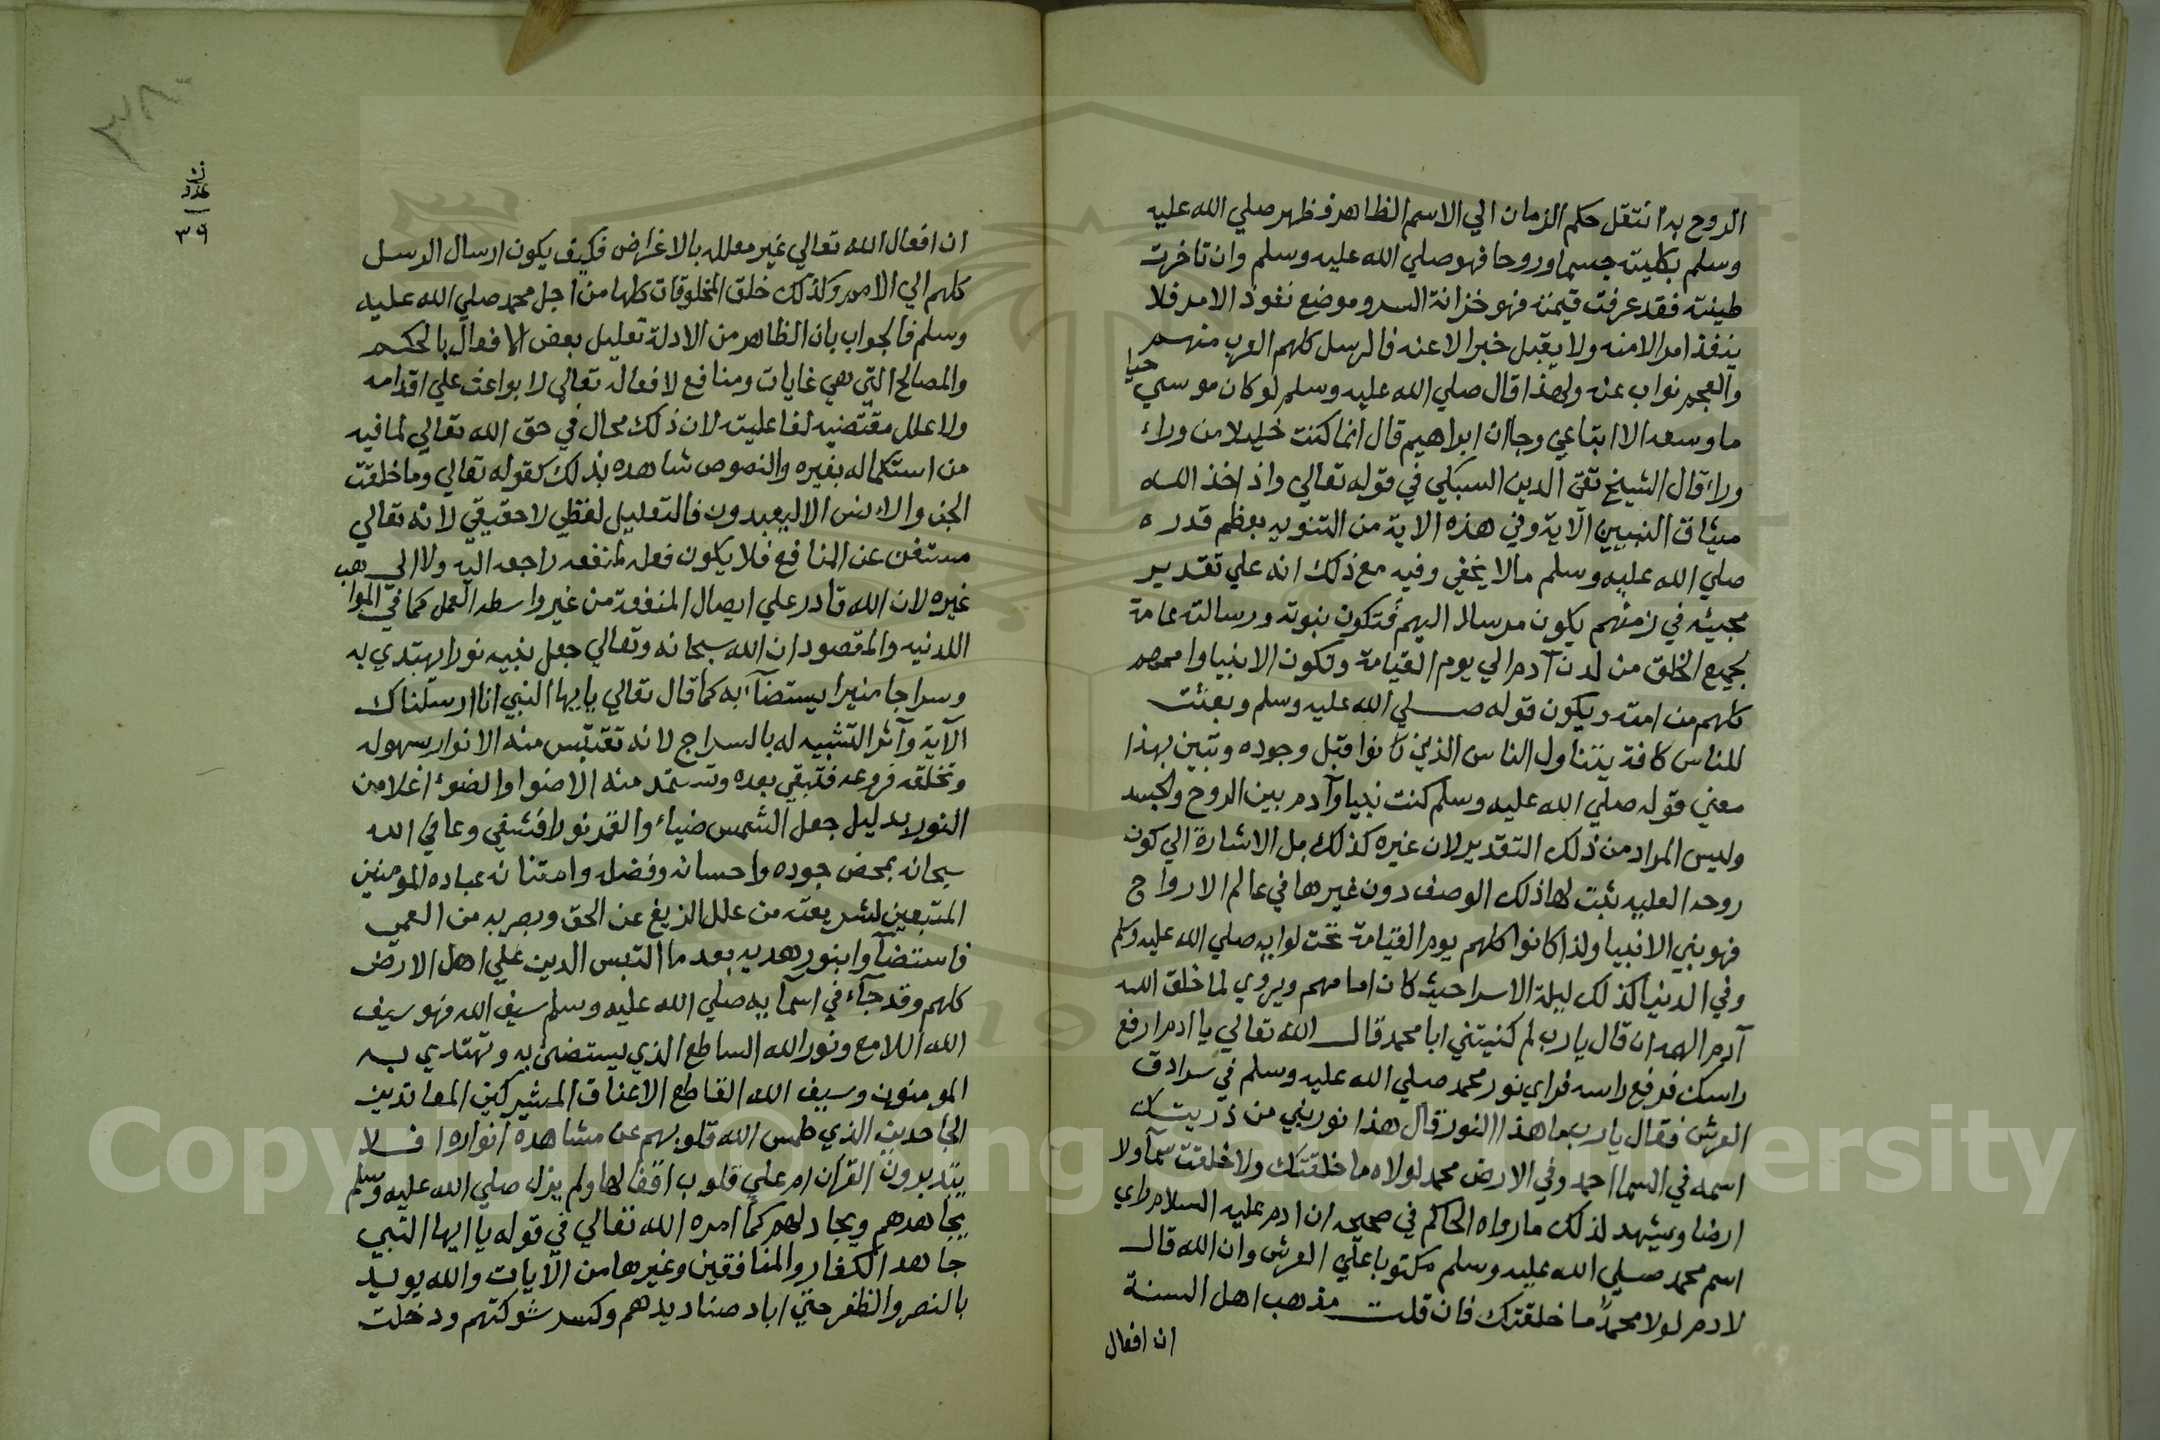 الروح به انتقل حكم الزمان الي الاسم الظاهر فظهر صلي الله عليه
وسلم بكليته جسما وروحا فهو صلي الله عليه وسلم وان تاخرت
طينته فقد عرفت قيمته فهو خزانة السر وموضع نفوذ الامر فلا
ينفذ امر الا منه ولا يقبل خبر الا عنه فالرسل كلهم العرب منهم
والعجم نواب عنه ولهذا قال صلي الله عليه وسلم لو كان موسي حيا
ما وسعه الا اتباعي وجا ان ابراهيم قال انما كنت خليلا من وراء
وراء قال الشيخ تقي الدين السبكي في قوله تعالي واذ اخذ الله
ميثاق النبيين الآية وفي هذه الاية من التنويه بعظم قدره
صلي الله عليه وسلم ما لا يخفي وفيه مع ذلك انه علي تقدير
مجيئه في زمنهم يكون مرسلا اليهم فتكون نبوته ورسالته عامة
لجميع الخلق من لدن آدم الي يوم القيامة وتكون الانبيا واممهم
كلهم من امته ويكون قوله صلي الله عليه وسلم وبعثت
للناس كافة يتناول الناس الذين كانوا قبل وجوده وتبين بهذا
معني قوله صلي الله عليه وسلم كنت نبيا وآدم بين الروح والجسد
وليس المراد من ذلك التقدير لان غيره كذلك بل الاشارة الي كون
روحه العليه ثبت لها ذلك الوصف دون غيرها في عالم الارواح
فهو نبي الانبيا ولذا كانوا كلهم يوم القيامة تحت لوايه صلي الله عليه وسلم
وفي الدنيا كذلك ليلة الاسرا حيث كان امامهم ويروي لما خلق الله
آدم الهمه ان قال يا رب لم كنيتني ابا محمد قال الله تعالي يا ادم ارفع
راسك فرفع راسه فراي نور محمد صلي الله عليه وسلم في سرادق
العرش فقال يا رب ما هذا النور قال هذا نور نبي من ذريتك
اسمه في السما احمد وفي الارض محمد لولاه ما خلقتك ولا خلقت سمآ ولا
ارضا ويشهد لذلك ما رواه الحاكم في صحيحه ان ادم عليه السلام راي
اسم محمد صلي الله عليه وسلم مكتوبا علي العرش وان الله قال
لادم لولا محمدًا ما خلقتك فان قلت مذهب اهل السنة
ان افعال
٣٨
عدد
٣٩
ان افعال الله تعالي غير معلله بالاغراض فكيف يكون ارسال الرسل
كلهم الي الامم وكذلك خلق المخلوقات كلها من اجل محمد صلي الله عليه
وسلم فالجواب بان الظاهر من الادلة تعليل بعض الافعال بالحكم
والمصالح التي هي غايات ومنافع لافعاله تعالي لا بواعث علي اقدامه
ولا علل مقتضيه لفاعليته لان ذلك محال في حق الله تعالي لما فيه
من استكماله بغيره والنصوص شاهده بذلك كقوله تعالي وما خلقت
الجن والانس الا ليعبدون فالتعليل لفظي لا حقيقي لانه تعالي
مستغن عن المنافع فلا يكون فعله لمنفعه راجعه اليه ولا الي
غيره لان الله قادر علي ايصال المنفعة من غير واسطه العمل كما في المواهب
اللدنيه والمقصود ان الله سبحانه وتعالي جعل نبيه نورا يهتدي به
وسراجا منيرا يستضآء به كما قال تعالي يا يها النبي انا ارسلناك
الآية وآثر التشبيه له بالسراج لانه تقتبس منه الانوار بسهوله
وتخلفه فروعه فتبقي بعده وتستمد منه الاضوا والضوء اعلا من
النور بدليل جعل الشمس ضياء والقمر نورا فشفي وعافي الله
سبحانه بمحض جوده واحسانه وفضله وامتنانه عباده المومنين
المتبعين لشريعته من علل الزيغ عن الحق وبصر به من العمي
فاستضآوا بنور هديه بعد ما التبس الدين علي اهل الارض
كلهم وقد جآء في اسمآيه صلي الله عليه وسلم سيف الله فهو سيف
الله اللامع ونور الله الساطع الذي يستضئ به وتهتدي به
المومنون وسيف الله القاطع الاعناق المشركين المعاندين
الجاحدين الذي طمس الله قلوبهم عن مشاهدة انواره افلا
يتدبرون القران ام علي قلوب اقفالها ولم يزل صلي الله عليه وسلم
يجاهدهم ويجادلهم كما امره الله تعالي في قوله يا ايها النبي
جاهد الكفار والمنافقين وغيرها من الآيات والله يويده
بالنصر والظفر حتي اباد صناديدهم وكسر شوكتهم ودخلت
Copyright © King Saud University